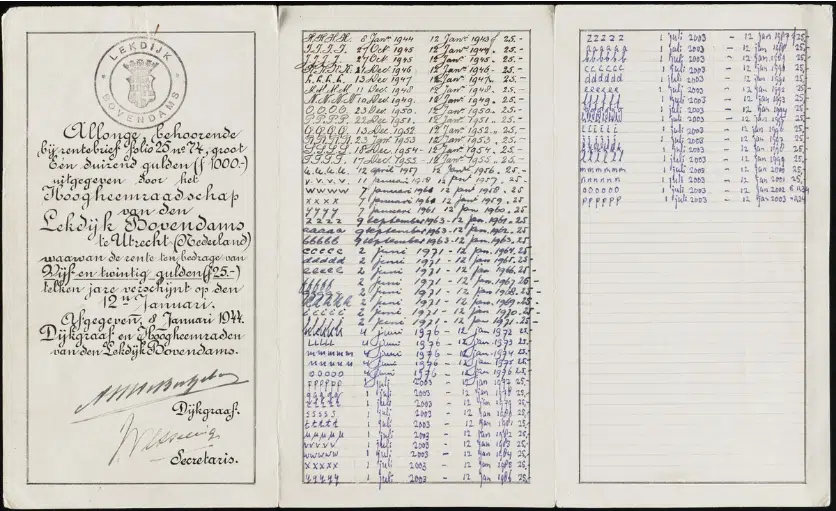 LEKDIJK
BOVENDAMS
Allonge, behoorende
bij rentebrief folio 25 no 74, groot
Een duizend gulden (ƒ 1000.-)
uitgegeven door het
Hoogheemraadschap
van den
Lekdijk Bovendams
te Utrecht (Nederland)
waarvan de rente ten bedrage van
Vijf en twintig gulden (ƒ 25.-)
telken jare verschijnt op den
12n Januari.
Afgegeven, 8 Januari 1944.
Dijkgraaf en Hoogheemraden
van den Lekdijk Bovendams.
Dijkgraaf.
Secretaris.
H.H.H.H. 8 Janr 1944 12 Janr 1943 25.-
I.I.I.I. 27 Oct 1945 12 Janr 1944. 25.-
27 Oct 1945 12 Janr 1945. 25.-
K.K.K.K. 21 Dec 1946 12 Janr 1946- 25.-
L.L.L.L. 13 Dec 1947 12 Janr 1947. 25.-
M.M.M.M. 11 Dec 1948 12 Janr 1948. 25.-
N.N.N.N. 10 Dec 1949. 12 Janr 1949. 25.-
O.O.O.O. 23 Dec 1950. 12 Janr 1950. 25.-
P.P.P.P. 22 Dec 1951. 12 Janr 1951. 25.-
13 Dec 1952 12 Janr 1952. 25.-
1953 12 Janr 1953. 25.-
18 Dec 1954 12 Janr 1954. 25.-
17 Dec 1955 12 Janr 1955. 25.-
u.u.u.u. 12 april 1957 12 Janr 1956. 25.-
v.v.v.v. 11 januari 1958 12 janr 1957. 25.-
wwww 7 januari 1960 12 janr 1958. 25.-
xxxx 7 januari 1960 12 janr 1959. 25.-
yyyy 7 januari 1961 12 janr 1960. 25.-
zzzz 9 september 1963 - 12 jan. 1961. 25.-
aaaaa 9 september 1963 - 12 jan. 1962. 25-
bbbbb 9 september 1963 - 12 jan. 1963. 25-
ccccc 2 juni 1971 - 12 jan. 1964. 25-
ddddd 2 juni 1971 - 12 jan. 1965. 25-
eeeee 2 juni 1971 - 12 jan. 1966. 25-
fffff 2 juni 1971 - 12 jan. 1967. 25-
2 juni 1971 - 12 jan. 1968. 25-
2 juni 1971 - 12 jan. 1969. 25-
iiiii 2 juni 1971 - 12 jan. 1970. 25-
2 juni 1971 - 12 jan. 1971. 25-
4 juni 1976 - 12 jan 1972 25-
lllll 4 juni 1976 - 12 jan 1973 25-
mmmmm 4 juni 1976 - 12 jan 1974 25-
nnnnn 4 juni 1976 - 12 jan 1975 25-
ooooo 4 juni 1976 - 12 jan 1976 25-
ppppp 1 juli 2003 - 12 jan 1977 25,-
qqqqq 1 juli 2003 - 12 jan 1978 25,-
rrrrr 1 juli 2003 - 12 jan 1979 25,-
sssss 1 juli 2003 - 12 jan 1980 25,-
ttttt 1 juli 2003 - 12 jan 1981 25,-
uuuuu 1 juli 2003 - 12 jan 1982 25,-
vvvvv 1 juli 2003 - 12 jan 1983 25,-
wwwww 1 juli 2003 - 12 jan 1984 25,-
xxxxx 1 juli 2003 - 12 jan 1985 25,-
yyyyy 1 juli 2003 - 12 jan 1986 25,-
zzzzz 1 juli 2003 - 12 jan 1987 25,-
aaaaaa 1 juli 2003 - 12 jan 1988 25,-
bbbbbb 1 juli 2003 - 12 jan 1989 25,-
cccccc 1 juli 2003 - 12 jan 1990 25,-
dddddd 1 juli 2003 - 12 jan 1991 25,-
eeeeee 1 juli 2003 - 12 jan 1992 25,-
ffffff 1 juli 2003 - 12 jan 1993 25,-
1 juli 2003 - 12 jan 1994 25,-
1 juli 2003 - 12 jan 1995 25,-
iiiiii 1 juli 2003 - 12 jan 1996 25,-
1 juli 2003 - 12 jan 1997 25,-
1 juli 2003 - 12 jan 1998 25,-
llllll 1 juli 2003 - 12 jan 1999 25,-
mmmmmm 1 juli 2003 - 12 jan 2000 25,-
nnnnnn 1 juli 2003 - 12 jan 2001 25,-
oooooo 1 juli 2003 - 12 jan 2002
pppppp 1 juli 2003 - 12 jan 2003